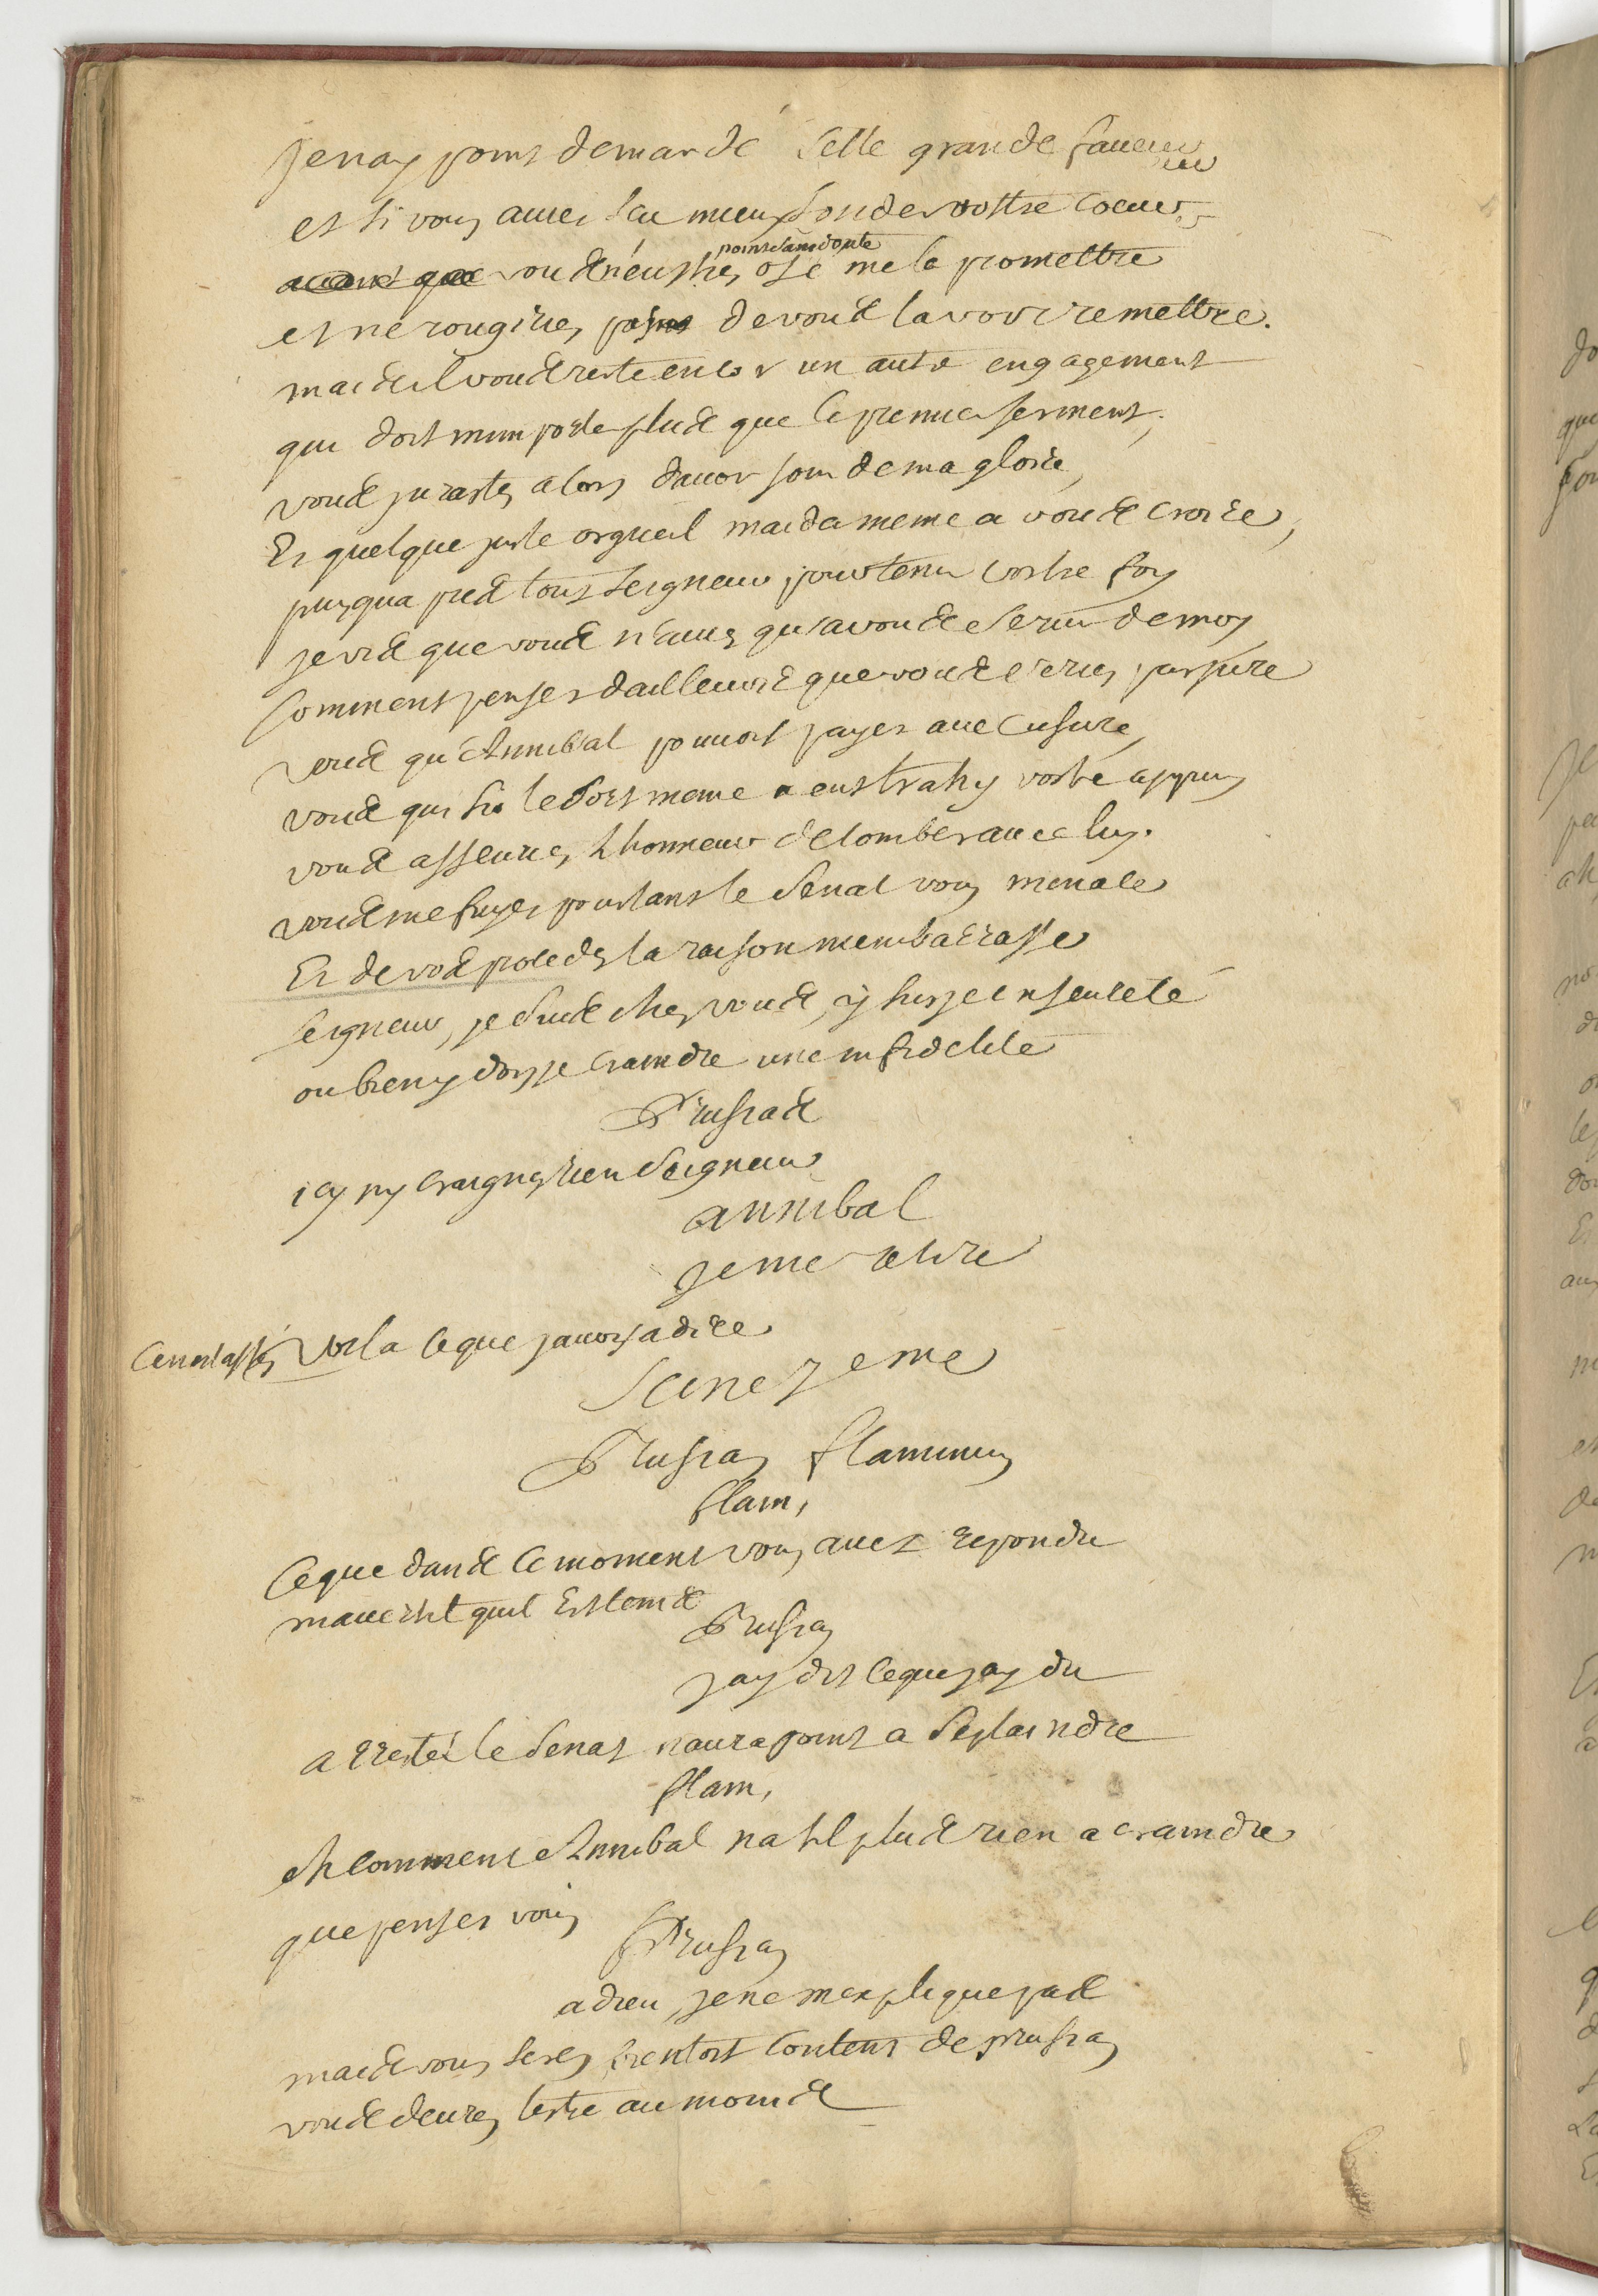 Jenay point demandé Cette grande faueur
et si vous auiez sceu mieux sonder vostre Coeur
point sans doute
vous neussiez osé me la promettre
et ne rougiriez point de vous la voir remettre.
mais il vous reste encor un autre engagement
qui doit mimporter plus que le premier serment,
vous jurastes alors dauoir soin de ma gloire,
Et quelque juste orgueil maida meme a vous croire,
puisqua pres tout seigneur, pour tenir vostre foy
je vis que vous n'auiez qu'a vous seruir de moy
Comment penser dailleurs que vous seriez parjure
vous qu'Annibal pouuoit payer auec usure,
vous qui si le sort meme eust trahy vostre appuy
vous assuriez lhonneur de tomber auec luy.
vous me fuyez pourtant le Senat vous menace
Et de vos procedez la raison membarrasse
seigneur, je suis chez vous, y suis je en seureté
ou bien y dois je craindre une infidelité
Prusias
icy ny craignez rien Seigneur
annibal
je me retire
Cen est assez voila ce que jauois a dire
Scene 7eme
Prusias flaminius
flam,
Ce que dans ce moment vous auez repondu
mauertit quil est temps
Prusias
jay dit ce que jay du
arrestez le Senat naura point a se plaindre
flam,
eh comment Annibal na til plus rien a craindre
que pensez vous
Prusias
adieu, je ne mexplique pas
mais vous serez bientost Content de prusias
vous deurez lestre au moins